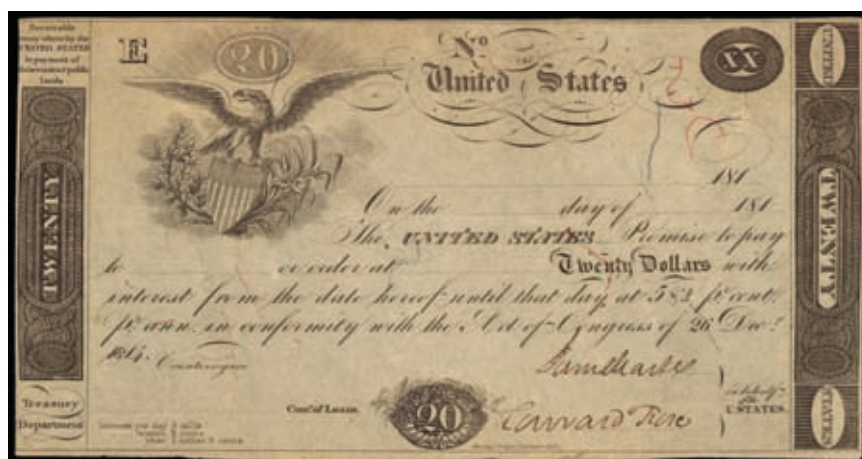 Receivable
every where by the
UNITED STATES
in payment of
all
public
lands
TWENTY
Treasury
Department
E
20
No
United States
XX
181
On the day of 181
The UNITED STATES Promise to pay
to or order at Twenty Dollars with
interest from the date hereof until that day at 5 2/5 pr cent.
pr ann. in conformity with the Act of Congress of 26 Decr.
1814.
Countersigned
Interest per day 3 mills
Comr of Loans.
20
in behalf
of the
U.STATES.
UNITED
TWENTY
STATES